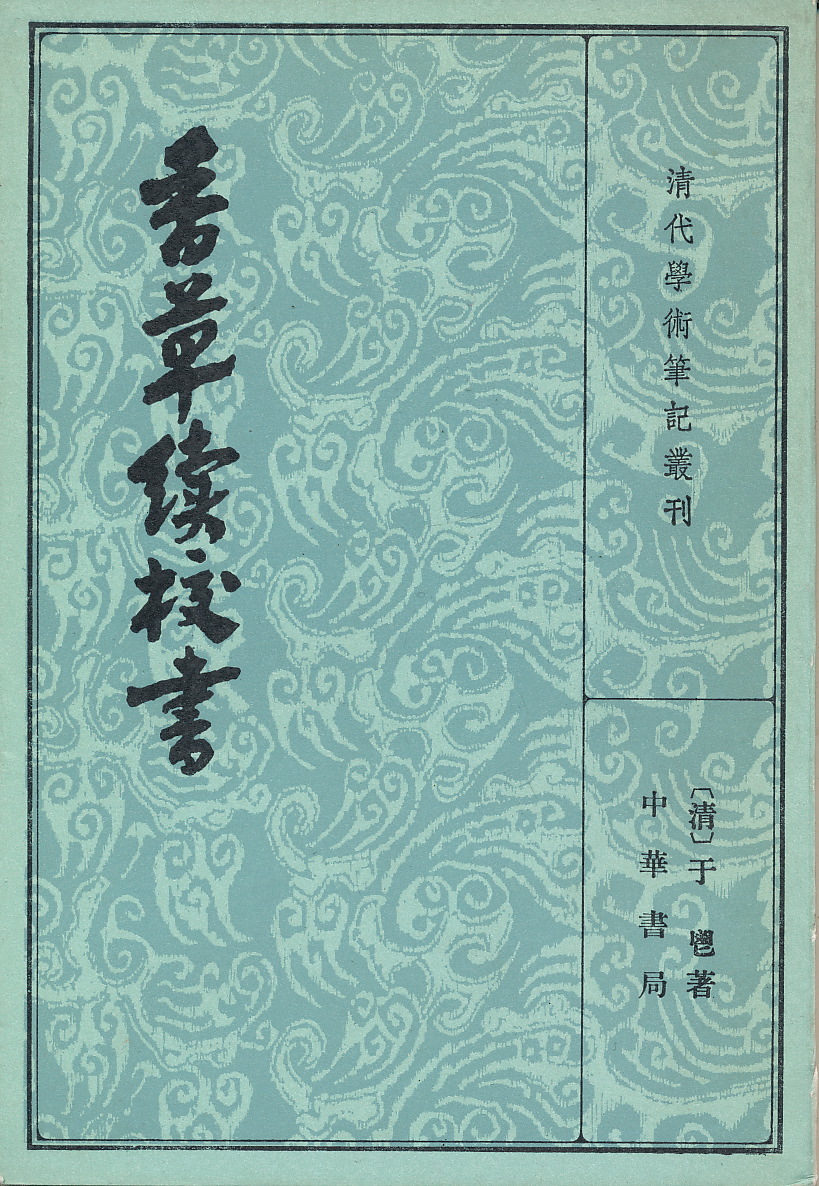 清代學術筆記叢刊
〔清〕于鬯著
中華書局
香草續校書